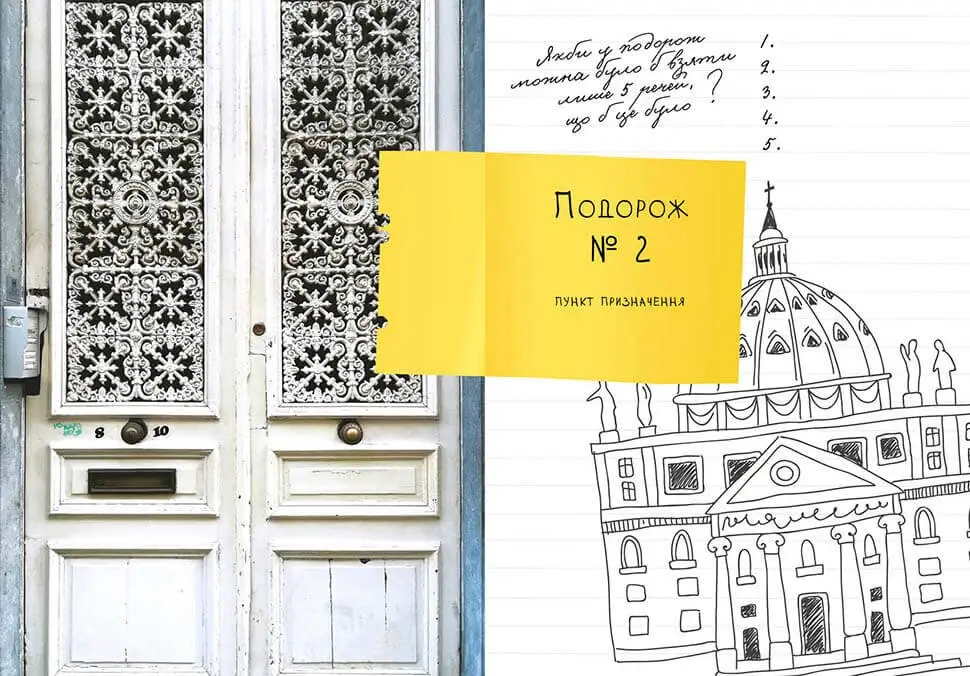 Якби у подорож
можна було б взяти
лише 5 речей,
що б це було ?
1.
2.
3.
4.
5.
Подорож
№ 2
пункт призначення
8
10